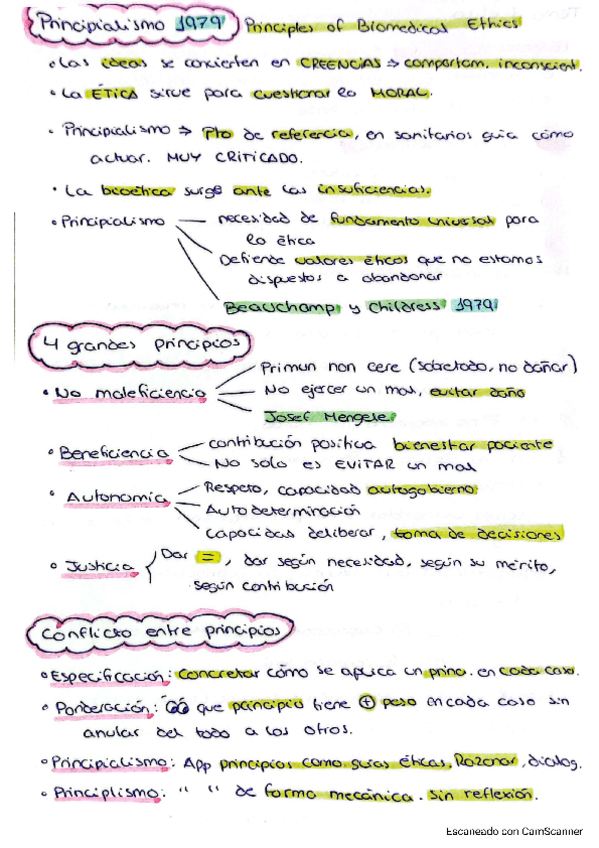 Principialismo 1979 Principles of Biomedical Ethics
• Las ideas se convierten en CREENCIAS → comportam. inconscient.
• La ÉTICA sirve para cuestionar lo MORAL.
• Principialismo ⇒ Pto de referencia, en sanitarios guia cómo
actuar. MUY CRITICADO.
• La bioética surge ante las insuficiencias.
• Principialismo — necesidad de fundamento universal para
la ética
Defiende valores éticos que no estamos
dispuestos a abandonar
Beauchamp y Childress 1979.
4 grandes principios
• No maleficiencia
Primun non cere (sobretodo, no dañar)
No ejercer un mal, evitar daño
Josef Mengele.
• Beneficiencia
contribución positiva bienestar paciente
No solo es EVITAR un mal
• Autonomía
Respeto, capacidad autogobierno
Autodeterminación
Capacidas deliberar, toma de decisiones
• Justicia { Dar =, dar según necesidad, según su mérito,
según contribución
Conflicto entre principios
• Especificación: concretar cómo se aplica un princ. en cada caso.
• Ponderación: que principio tiene + peso en cada caso sin
anular del todo a los otros.
• Principialismo: App principios como guías éticas, Razonar, dialog.
• Principlismo: " " de forma mecánica. Sin reflexión.
Escaneado con CamScanner